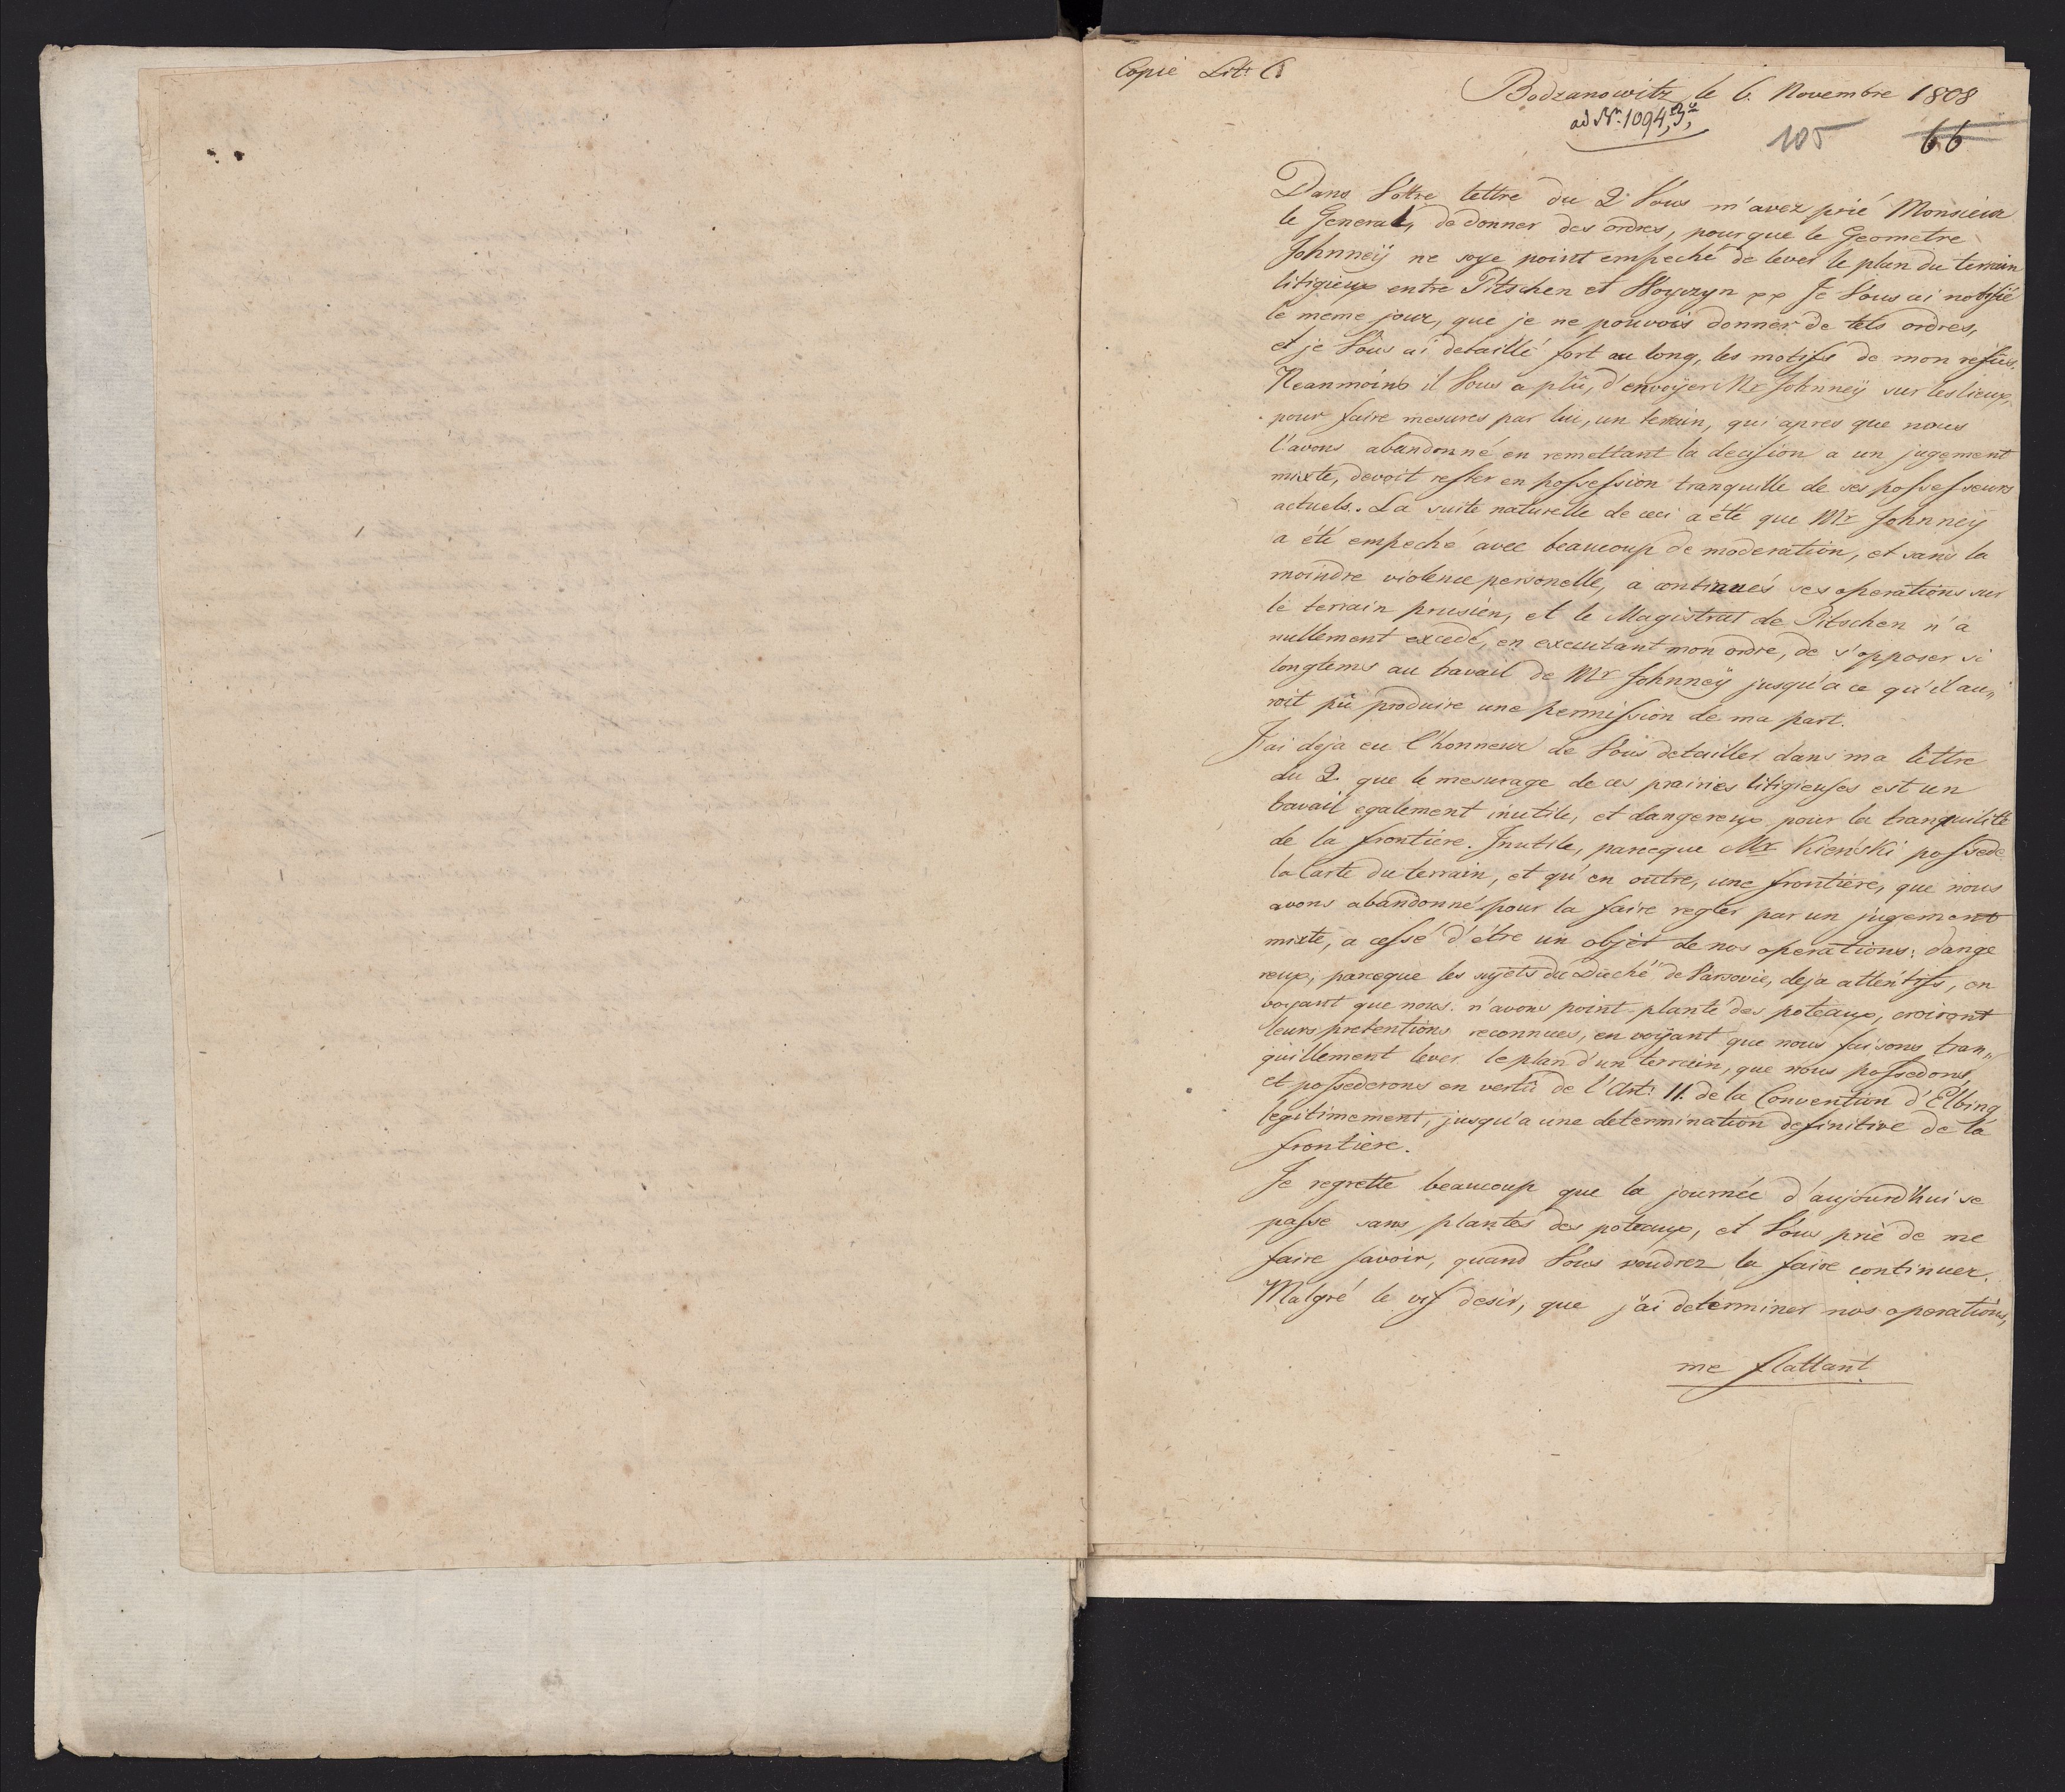 Copie Litt G
Bodzanowitz le 6. Novembre 1808
ad Nr. 1094,
105 66
Dans Vôtre lettre du 2. Vous m'avez prié Monsieur
le General, de donner des ordres, pour que le Geometre
Johnneÿ ne soye point empeché de lever le plan du terrain
litigieux entre Pitschen et Woyczyn pp Je Vous ai notifié
le meme jour, que je ne pouvois donner de tels ordres,
et je Vous ai detaillé fort au long, les motifs de mon refus.
Neanmoins il Vous a plû, d'envoÿer Mr Johnneÿ sur les lieux,
pour faire mesurer par lui, un terrain, qui apres que nous
l'avons abandonné en remettant la decision a un jugement
mixte, devoit rester en possession tranquille de ses possesseurs
actuels. La suite naturelle de ceci a été que Mr Johnneÿ
a été empeché avec beaucoup de moderation, et sans la
moindre violence personelle, a continués ses operations sur
le terrain prusien, et le Magistrat de Pitschen n'a
nullement excedé, en executant mon ordre, de s'opposer si
longtems au travail de Mr Johnneÿ jusqu'a ce qu'il au„
roit pû produire une permission de ma part.
J'ai deja eu l'honneur de Vous detailler dans ma lettre
du 2. que le mesurage de ces prairies litigieuses est un
travail egalement inutile, et dangereux pour la tranquilité
de la frontiere. Inutile, parceque Mr Kieński possede
la Carte du terrain, et qu'en outre, une frontiere, que nous
avons abandonné pour la faire regler par un jugement
mixte, a cessé d'être un objèt de nos operations: dange
reux, parceque les sujets du Duché de Varsovie, deja attentifs, en
voyant que nous n'avons point planté des poteaux, croiront
leurs pretentions reconnues, en voÿant que nous faisons tran„
quillement lever le plan d'un terrain, que nous possedons,
et possederons en vertû de l'Art: 11. de la Convention d'Elbing
legitimement, jusqu'a une determination definitive de la
frontière.
Je regrette beaucoup que la journée d'aujourd'hui se
passe sans planter des poteaux, et Vous prie de me
faire savoir, quand Vous voudrez la faire continuer.
Malgré le vif desir, que j'ai determiner nos operations,
me flattant